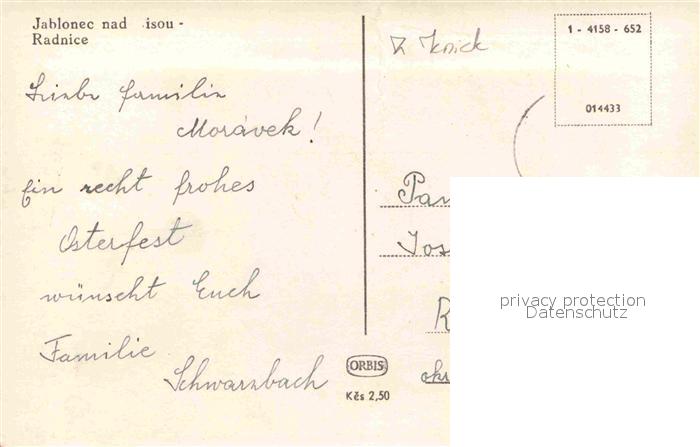 Jablonec nad isou -
Radnice
Liebe Familie
Morávek!
Ein recht frohes
Osterfest
wünscht Euch
Familie
Schwarzbach
Knick
1 - 4158 - 652
014433
Pan
Jos
R
okr
privacy protection
Datenschutz
ORBIS
Kčs 2,50